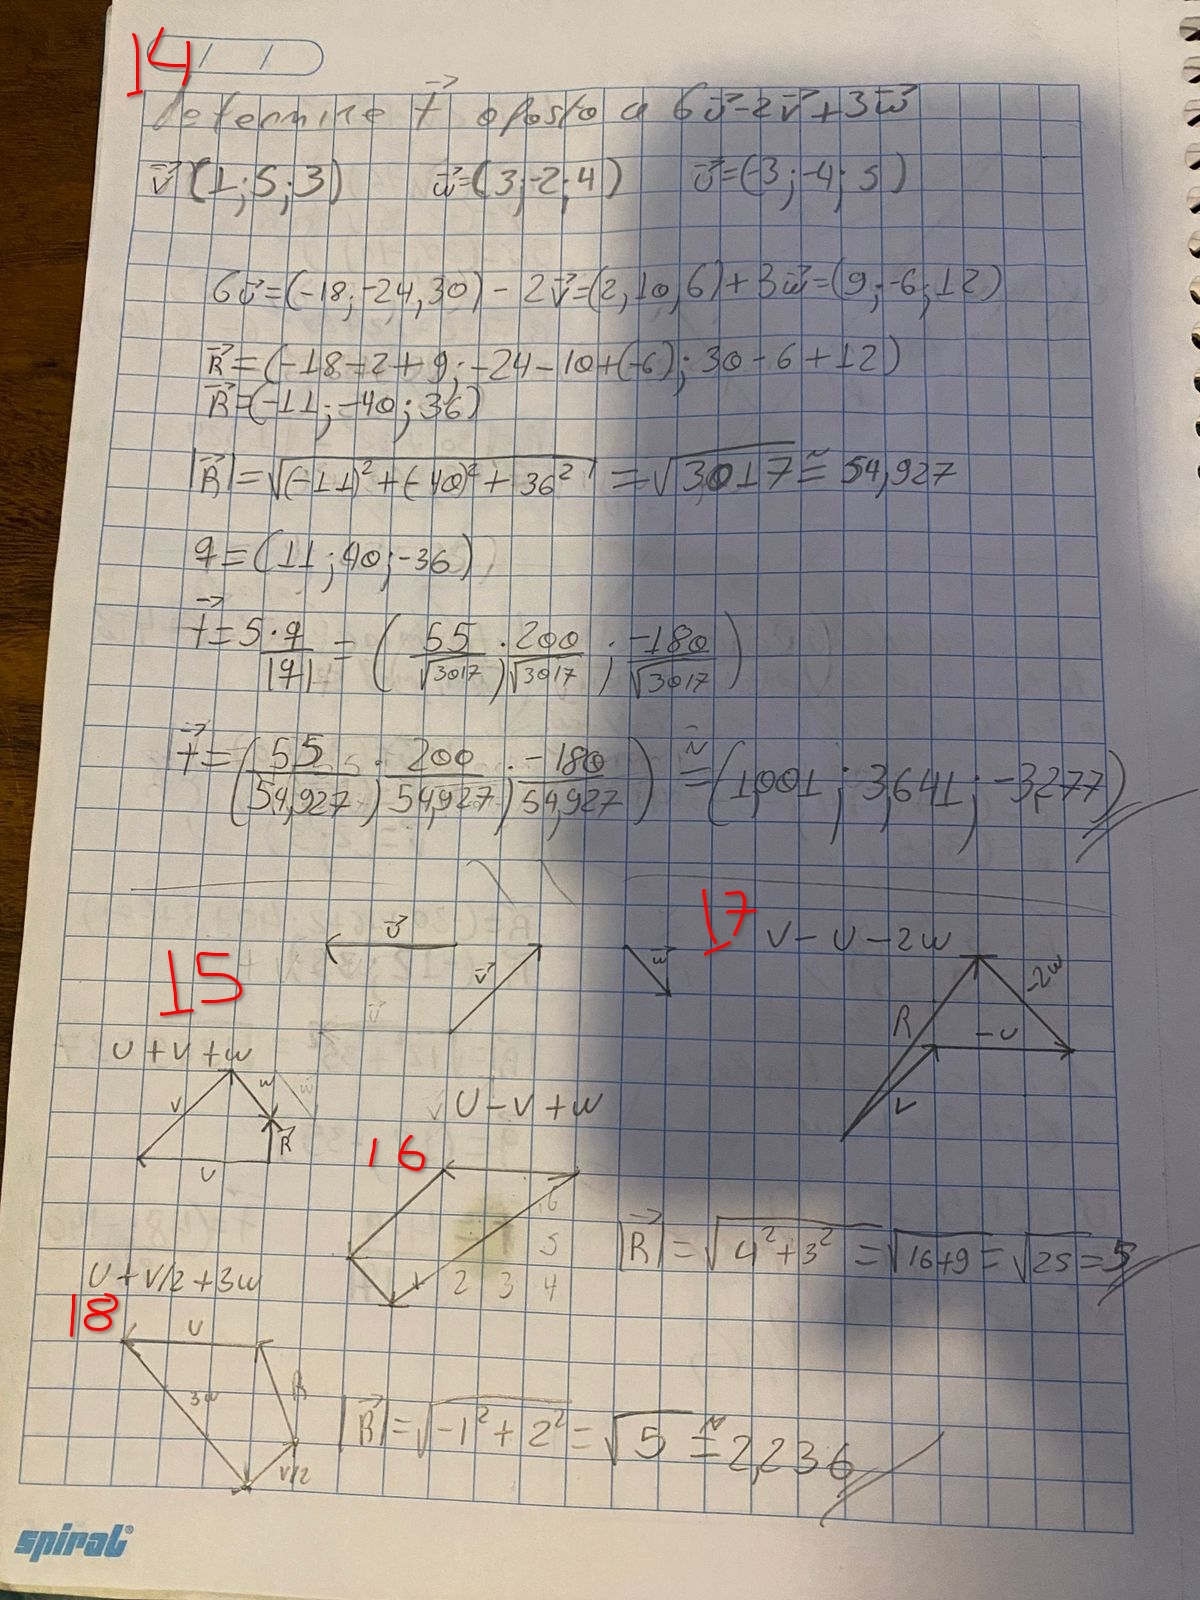 14
Determine t⃗ oposto a 6u⃗-2v⃗+3w⃗
v⃗ (1;5;3) w⃗=(3;-2;4) u⃗=(-3;-4;5)
6u⃗=(-18;-24,30)-2v⃗=(2,10,6)+3w⃗=(9;-6;12)
R⃗=(-18-2+9;-24-10+(-6);30-6+12)
R⃗=(-11;-40;36)
|R⃗|=√(-11)²+(-40)²+36² =√3017≅54,927
q=(11;40;-36)
t⃗=5·q/|q|=(55/√3017;200/√3017;-180/√3017)
t⃗=(55/54,927;200/54,927;-180/54,927)≅(1,001;3,641;-3,277)
u⃗ v⃗ w⃗
15
U+V+w
V w R⃗ U
16
U-V+w
6
5
1 2 3 4
17
V-U-2w
R -2w -U V
|R⃗|=√4²+3²=√16+9=√25=5
18
U+V/2+3w
U 3w R V/2
|R⃗|=√-1²+2²=√5≅2,236
spiral®